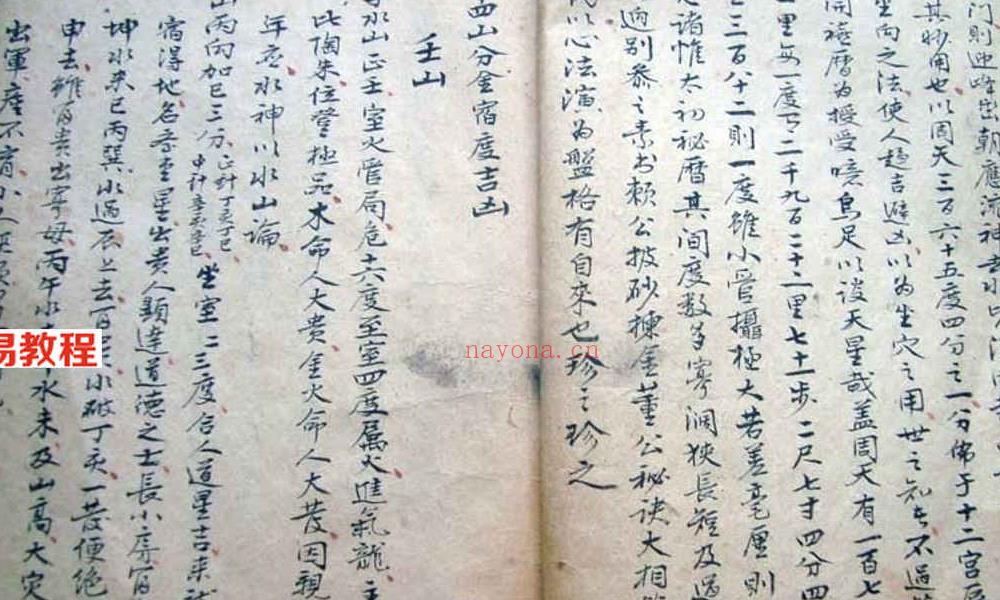 門則迎峰出朝應流神
其妙用也以周天三百六十五度四分之一分佈于十二宮
坐向之法使人趨吉避凶以為坐穴之用世之知者不過
開禧曆為授受噫烏足以談天星哉蓋周天有一百七
里每一度二千九百二十二里七十一步二尺七寸四分四
三百八十二則一度雖小管攝極大若差毫厘則
諸惟太初秘曆其間度数多寡濶狹長短及過
迥别叅之素书頼公披砂揀金董公秘诀大相
以心法演為盤格有自來也珍之珍之
四山分金宿度吉凶
壬山
水山正壬室火管局危十六度至室四度属火進氣龍主
此陶朱位登極品木命人大貴金火命人大發因親
年應水神以水山論
山丙向加巳三分正針丁亥丁巳
坐室二三度合人道星吉來
宿得地名帝皇星出貴人顯達道德之士長小房官
坤水来巳丙巽水過辰上去百小破丁亥一發便绝
申去雖有貴出寡母丙午水
水未及山高大灾
出軍産不育小人
易教程
nayona.cn